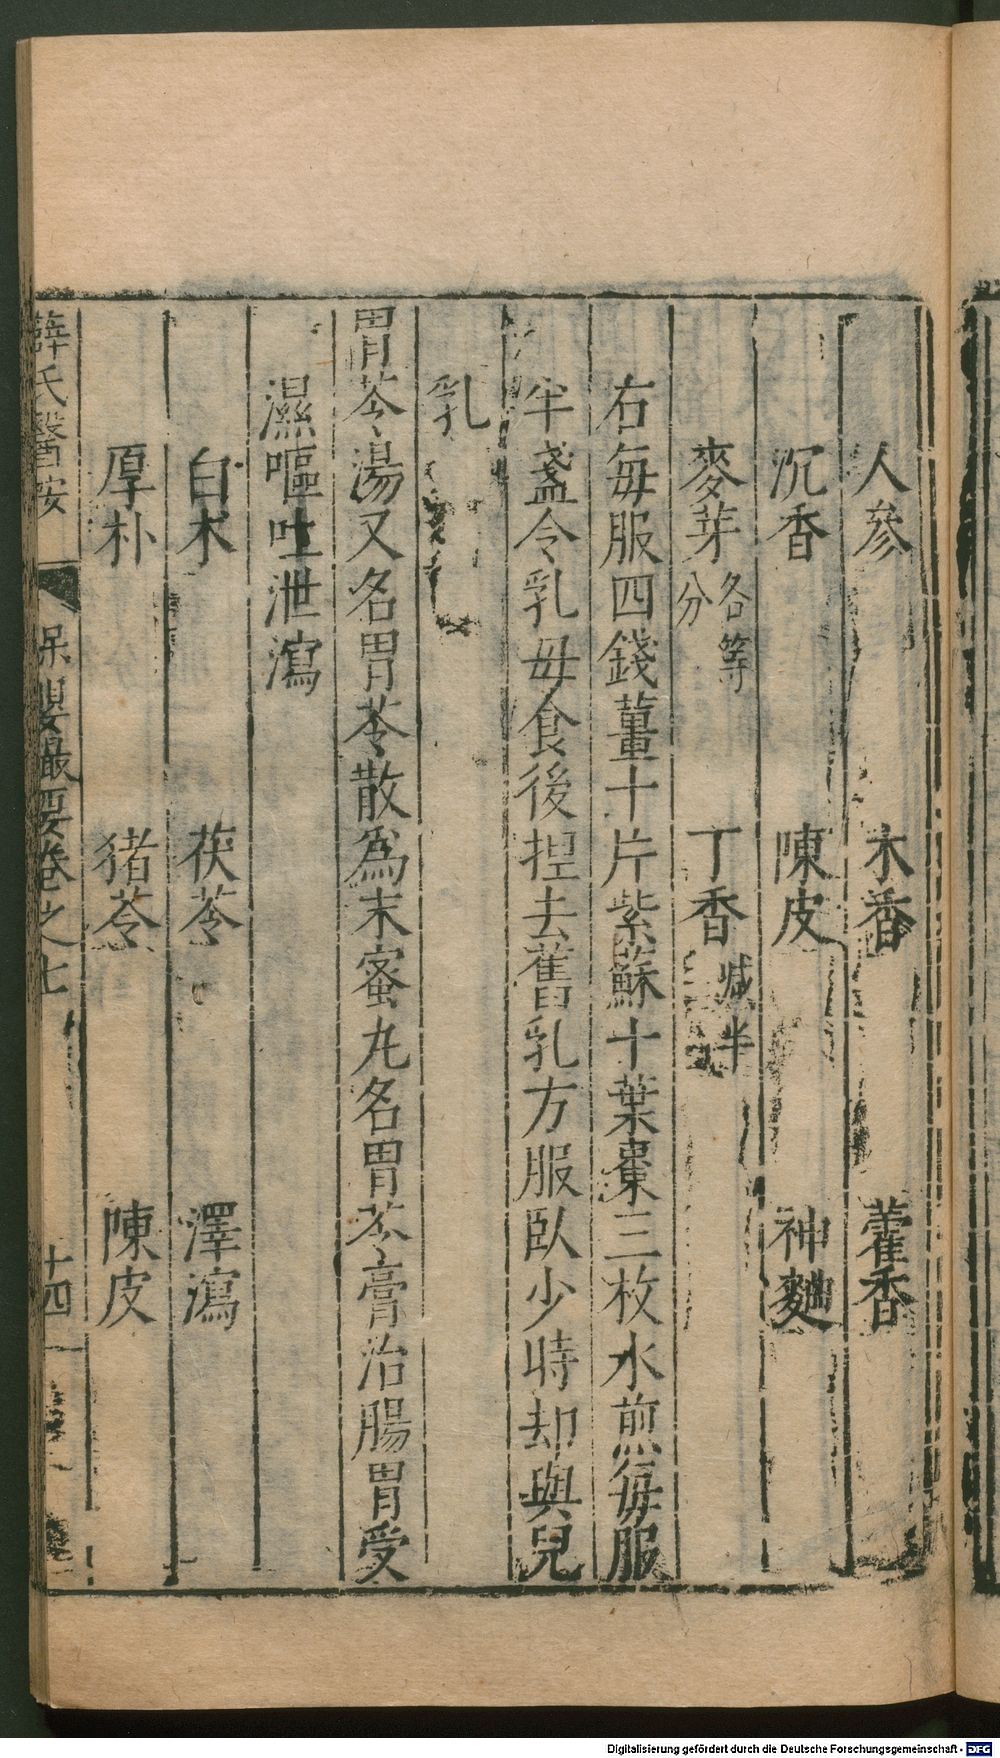 人參　木香　藿香
沉香　陳皮　神麯
麥芽各等分　丁香減半
右每服四錢薑十片紫蘇十葉棗三枚水煎每服
半盞令乳母食後捏去舊乳方服臥少時却與兒
乳
胃苓湯又名胃苓散爲末蜜丸名胃苓膏治腸胃受
濕嘔吐泄瀉
白朮　茯苓　澤瀉
厚朴　猪苓　陳皮
薛氏醫按　保嬰撮要卷之七　十四
Digitalisierung gefördert durch die Deutsche Forschungsgemeinschaft - DFG